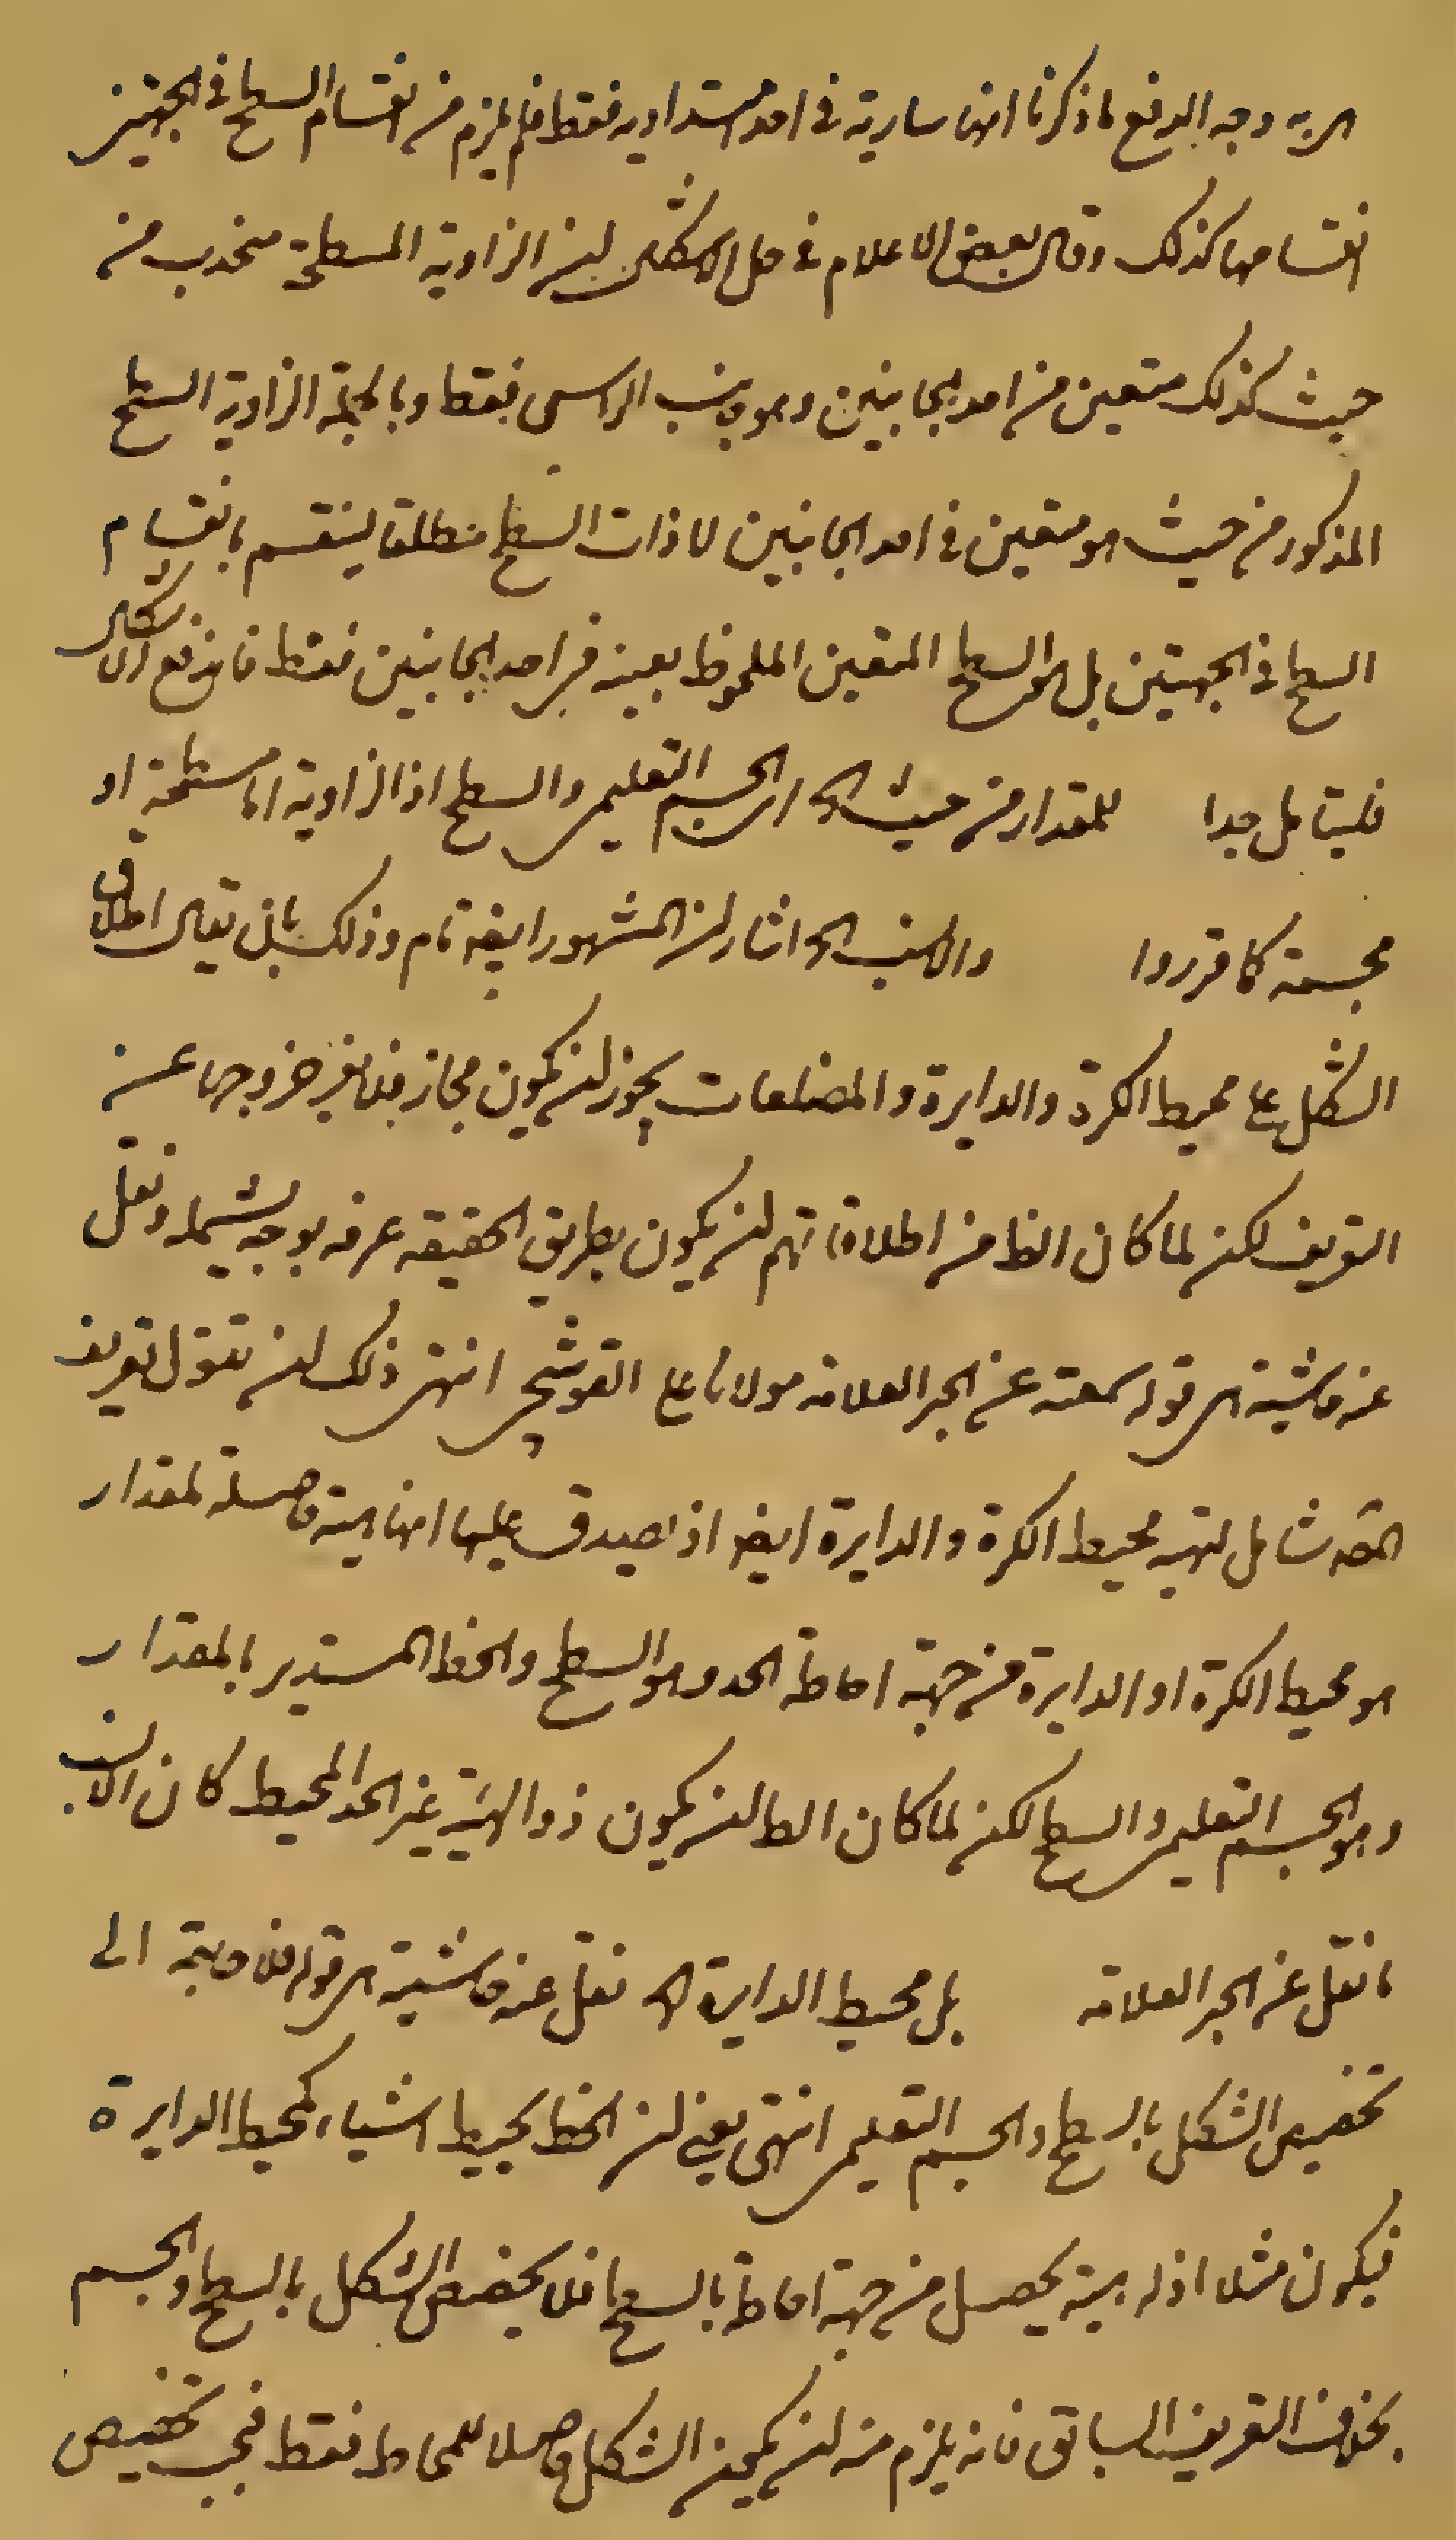 الربه وجه الدفع ما ذكرنا انها سارية فى احد امتداديه فقط فلم يلزم من انقسام السطح فى الجهتين
انقسامها كذلك وقال بعض الاعلام فى حل الاشكال ان الزاوية المسطحة منحدب من
حيث كذلك متعين من احد الجانبين وهو جانب الراس فقط وبالجملة الزاوية السطح
المذكور من حيث هو متعين فى احد الجانبين لا ذات السطح مطلقا لينقسم بانقسام
السطح فى الجهتين بل هو السطح المتعين الملحوظ بعينه فى احد الجانبين فقط فاندفع الاشكال
فليتامل جدا للمقدار من حيث الخ اى الجسم التعليمى والسطح اذ الزاوية اما مسطحة او
مجسمة كما قرروا والانسب الخ اشار ان المشهور ايضا تام وذلك بان يقال اطلاق
الشكل على محيط الكرة والدايرة والمضلعات يجوز ان يكون مجاز فلا يضر خروجها عن
التعريف لكن لما كان الظ من اطلاقاتهم ان يكون بطريق الحقيقة عرفه بوجه يشمله ونقل
عنه حاشية هى قوله سمعته عن الحبر العلامة مولانا على القوشجى انتهى ذلك ان تقول تعريف
القوم شامل لهيئة محيط الكرة والدايرة ايضا اذ يصدق عليها انها هيئة حاصلة لمقدار
هو محيط الكرة او الدايرة من جهة احاطة الحد وهو السطح والخط المستدير بالمقدار
وهو الجسم التعليمى والسطح لكن لما كان الظ ان يكون ذو الهيئة غير الحد المحيط كان الانسب
ما نقل عن الحبر العلامة بل محيط الدايرة الخ نقل عنه حاشية هى قوله فلا وجه الى
تخصيص الشكل بالسطح والجسم التعليمى انتهى يعنى ان الخط يحيط اشياء كمحيط الدايرة
فيكون مثلا اذ له هيئة يحصل من جهة احاطة بالسطح فلا يخصص الشكل بالسطح والجسم
بخلاف التعريف السابق فانه يلزم منه ان يكون الشكل حاصلا للمحاط فقط فيجب تخصيص